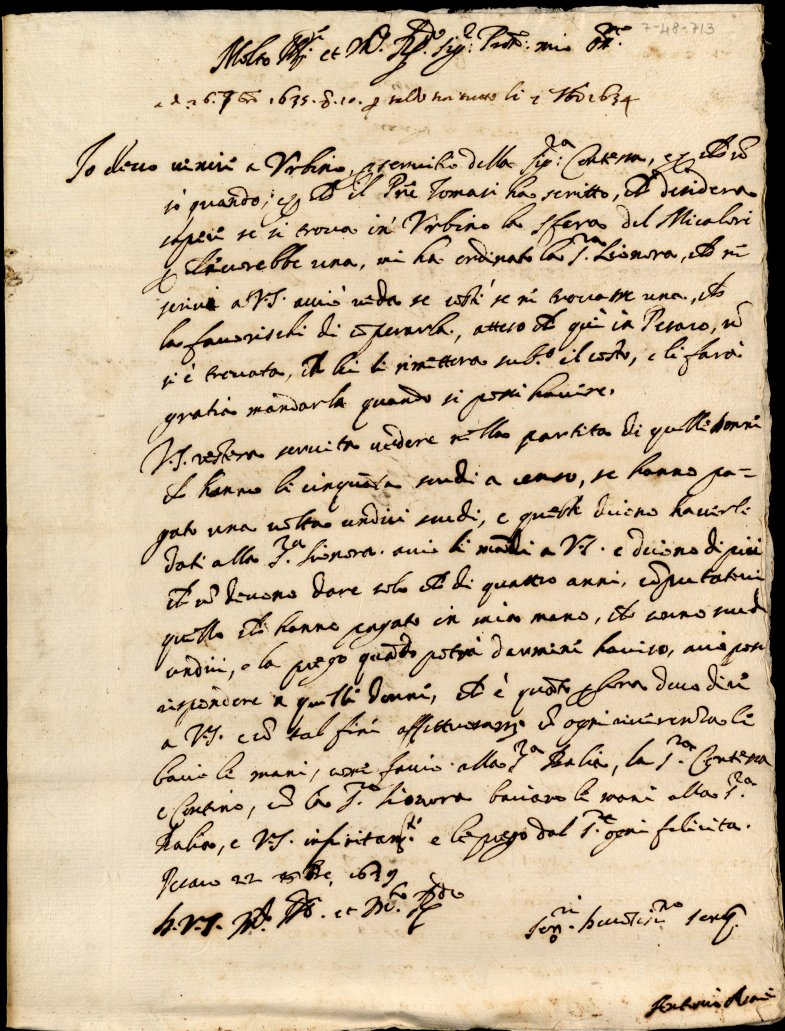 7-48-713
Molto Ill.re et M.to R.do Sig.r Pron: mio
1635. 10. p saldo li 1634
Io devo venire a Urbino, a servitio della Sig.ra Contessa, et
so quando; et ch il Pre Tomasi ha scritto, ch desidera
sapere se si trova in Urbino la Sfera del Micalori
vorrebbe una, mi ha ordinato la S.ra Lionora, ch
scriva a V.S. acciò veda se costì se ne trovasse una, ch
la favorischi di comperarla, atteso ch quì in Pesaro, nō
si è trovata, ch lei li rimetterà sub.o il costo, e li farà
gratia mandarla quando si possi havere.
V.S. resterà servita vedere nella partita di quelli
ch hanno li cinquāta scudi a censo, se hanno pa=
gato una volta undici scudi, e questi dicono haverli
dati alla S.ra Lionora. acciò li mādi a V.S. e dicono di più
ch nō devono dare solo ch di quattro anni, cōputatovi
quello ch hanno pagato in mia mano, ch sono scudi
undici, e la prego quādo potrà darmene haviso, acciò possi
rispōdere a quelli, ch è quāto p hora devo dire
a V.S. e cō tal fine affettuosam.te cō ogni riverenza le
bacio le mani, come faccio alla S.ra Dalia, la S.ra Contessa
e Contino, cō la S.ra Lionora baciano le mani alla S.ra
Dalia, e V.S. infinitam.te e le prego dal S.re ogni felicità.
Pesaro 22
D.V.S. M.to Ill.re et M.to R.da
Ser.re devotiss.mo
Antonio